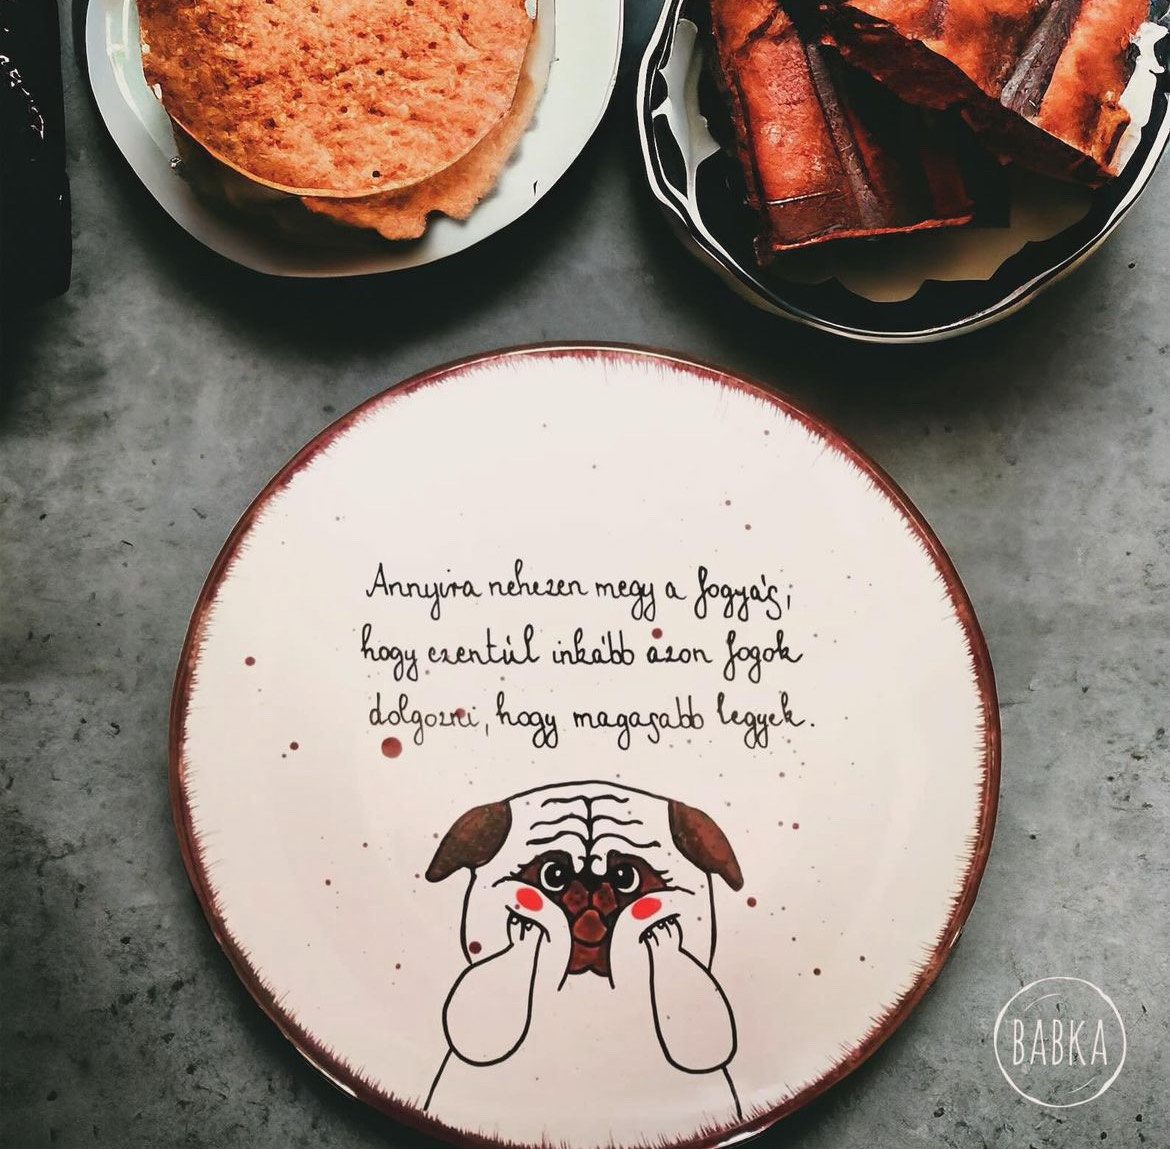 Annyira nehezen megy a fogyás,
hogy ezentúl inkább azon fogok
dolgozni, hogy magasabb legyek.
BABKA